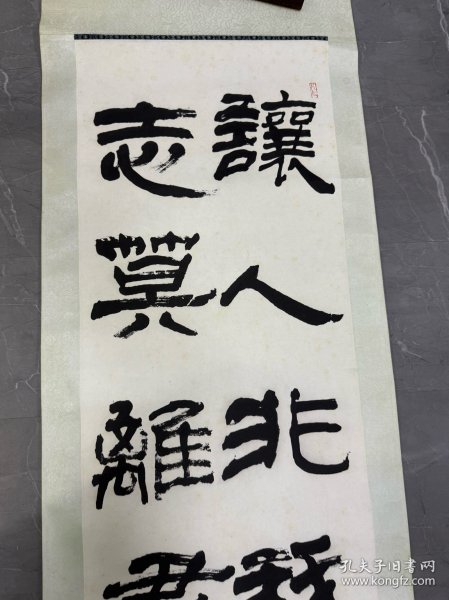 讓人非
志莫離
孔夫子旧书网
www.kongfz.com